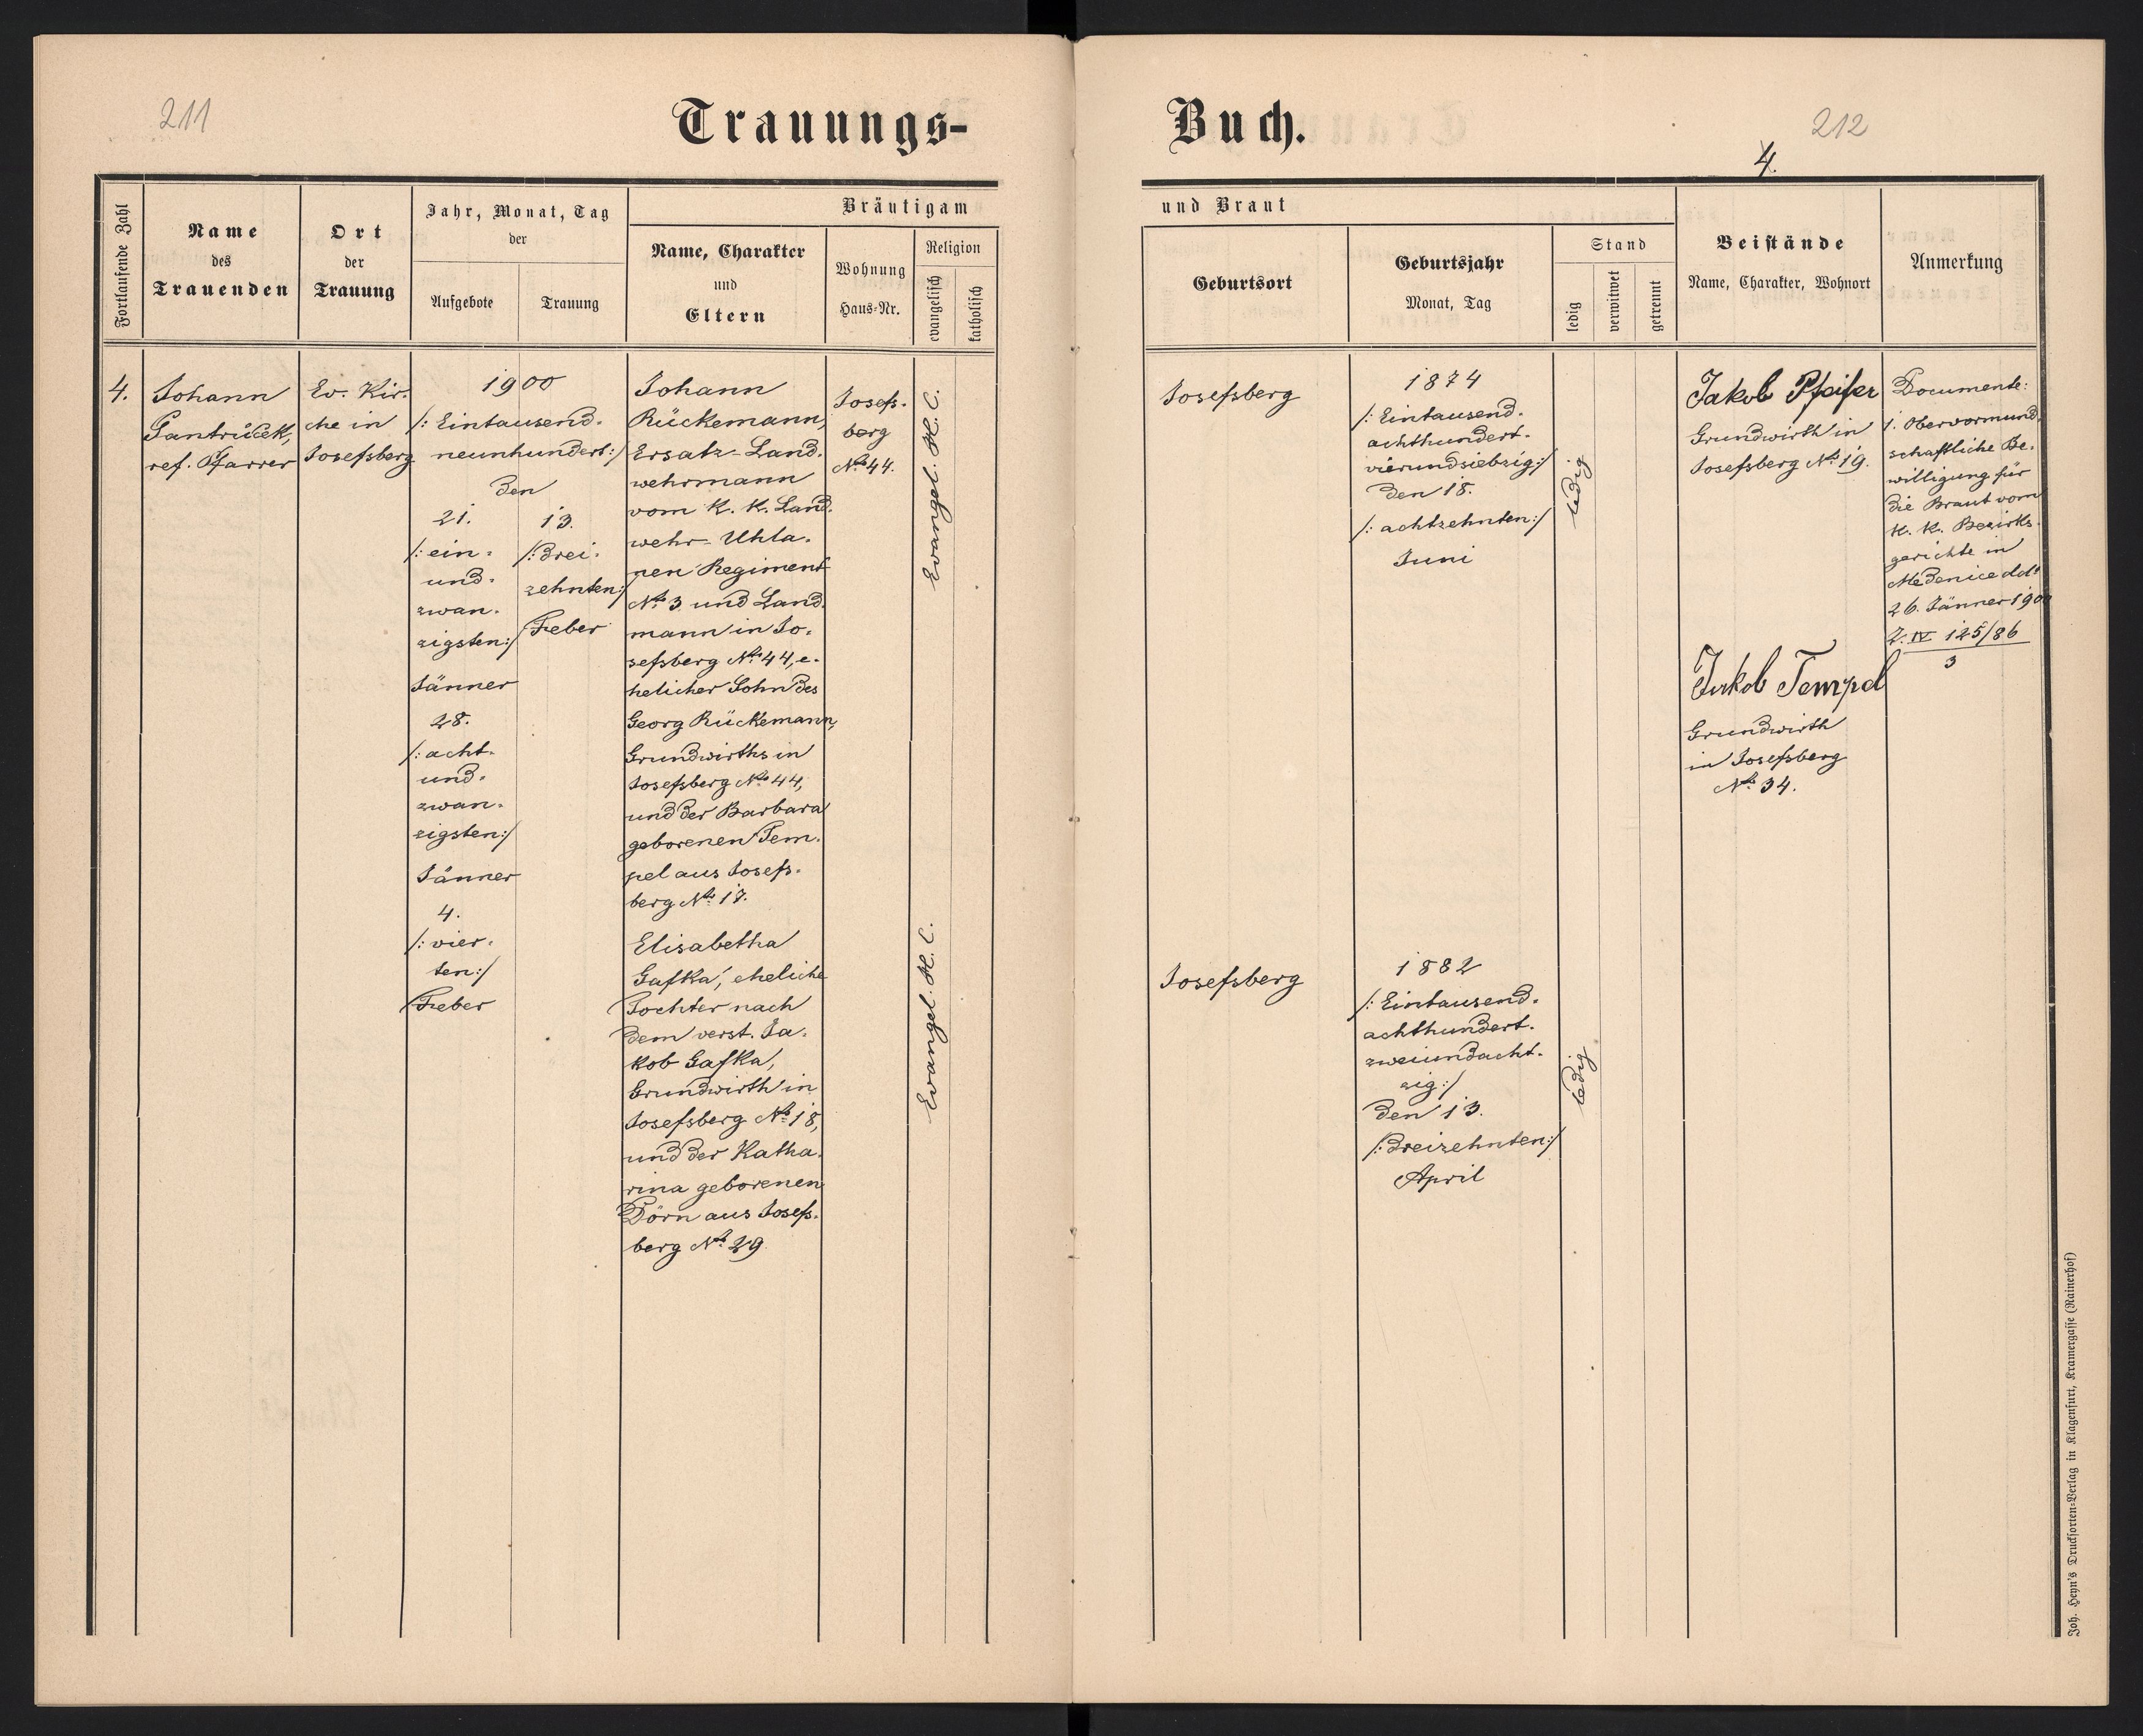 211
Trauungs-
Fortlaufende Zahl
Name
des
Trauenden
Ort
der
Trauung
Jahr, Monat, Tag
der
Aufgebote
Trauung
Bräutigam
Name, Charakter
und
Eltern
Wohnung
Haus-Nr.
Religion
evangelisch
katholisch
4.
Johann
Gantrücek,
ref. Pfarrer
Ev. Kir-
che in
Josefsberg
1900
/: Eintausend-
neunhundert :/
den
21.
/: ein-
und-
zwan-
zigsten :/
Jänner
28.
/: acht-
und-
zwan-
zigsten :/
Jänner
4.
/: vier-
ten :/
Feber
13.
/: drei-
zehnten :/
Feber
Johann
Rückemann,
Ersatz-Land-
wehrmann
vom K. K. Land-
wehr-Uhla-
nen Regiment
No. 3 und Land-
mann in Jo-
sefsberg No. 44, e-
helicher Sohn des
Georg Rückemann,
Grundwirths in
Josefsberg No. 44,
und der Barbara
geborenen Tem-
pel aus Josefs-
berg No. 17.
Elisabetha
Gafka, eheliche
Tochter nach
dem verst. Ja-
kob Gafka,
Grundwirth in
Josefsberg No. 18,
und der Katha-
rina geborenen
Dörn aus Josefs-
berg No. 29
Josefs-
berg
No. 44.
Evangel. H. C.
Evangel. H. C.
Buch.
212
4.
und Braut
Geburtsort
Geburtsjahr
Monat, Tag
Stand
ledig
verwitwet
getrennt
Beistände
Name, Charakter, Wohnort
Anmerkung
Josefsberg
1874
/: Eintausend-
achthundert-
vierundsiebzig :/
den 18.
/: achtzehnten :/
Juni
ledig
Jakob Pfeifer
Grundwirth in
Josefsberg No. 19.
Jakob Tempel
Grundwirth
in Josefsberg
No. 34.
Documente:
1. Obervormund-
schaftliche Be-
willigung für
die Braut vom
K. K. Bezirks-
gerichte in
Medenice ddt
26. Jänner 1900
Z. IV 125/86
3
Josefsberg
1882
/: Eintausend-
achthundert-
zweiundacht-
zig :/
den 13.
/: dreizehnten :/
April
ledig
Joh. Heyn's Drucksorten-Verlag in Klagenfurt, Kramergasse (Rainerhof)